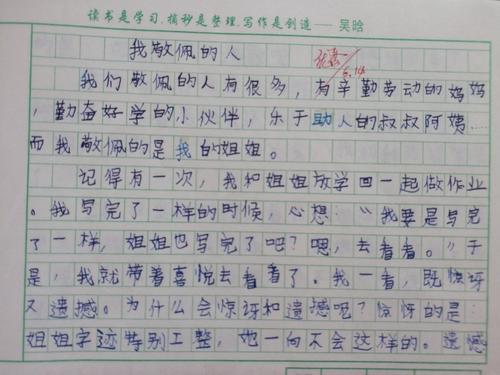 读书是学习，摘抄是整理，写作是创造——吴晗
我敬佩的人
我们敬佩的人有很多，有辛勤劳动的妈妈
，勤奋好学的小伙伴，乐于助人的叔叔阿姨……
而我敬佩的是我的姐姐。
记得有一次，我和姐姐放学回一起做作业
。我写完了一样的时候，心想：“我要是写完
了一样，姐姐也写完了吧？嗯，去看看。”于
是，我就带着喜悦去看看了。我一看，既惊讶
又遗憾。为什么会惊讶和遗憾呢？惊讶的是：
姐姐字迹特别工整，她一向不会这样的。遗憾